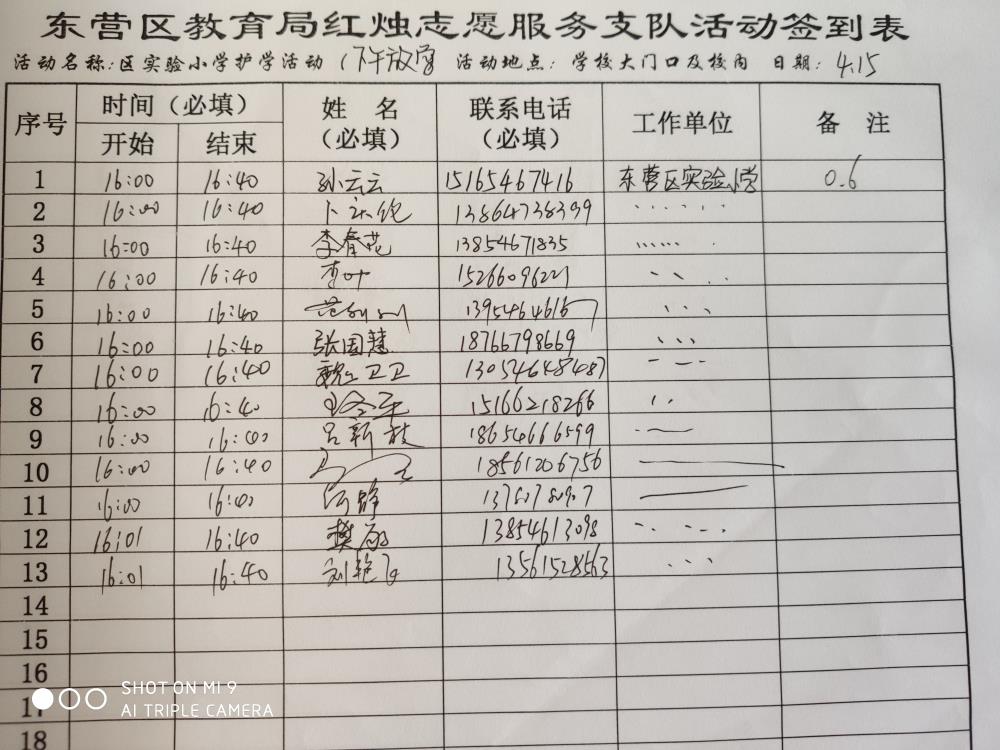 东营区教育局红烛志愿服务支队活动签到表
活动名称:区实验小学护学活动 (下午放学 活动地点: 学校大门口及校内 日期: 4.15
序号 时间（必填） 姓 名 联系电话 工作单位 备 注
开始 结束 （必填） （必填）
1 16:00 16:40 孙云云 15165467416 东营区实验小学 0.6
2 16:00 16:40 13864738399
3 16:00 16:40 李春花 13854671835
4 16:00 16:40 李叶 15266096221
5 16:00 16:40 13954646167
6 16:00 16:40 张国慧 18766798669
7 16:00 16:40 魏卫卫 13054648487
8 16:00 16:40 15166218266
9 16:00 16:40 吕新枝 18654666599
10 16:00 16:40 18561206756
11 16:00 16:40
12 16:01 16:40 13854613098
13 16:01 16:40 刘艳飞 13561528563
14
15
16
17
18
SHOT ON MI 9
AI TRIPLE CAMERA